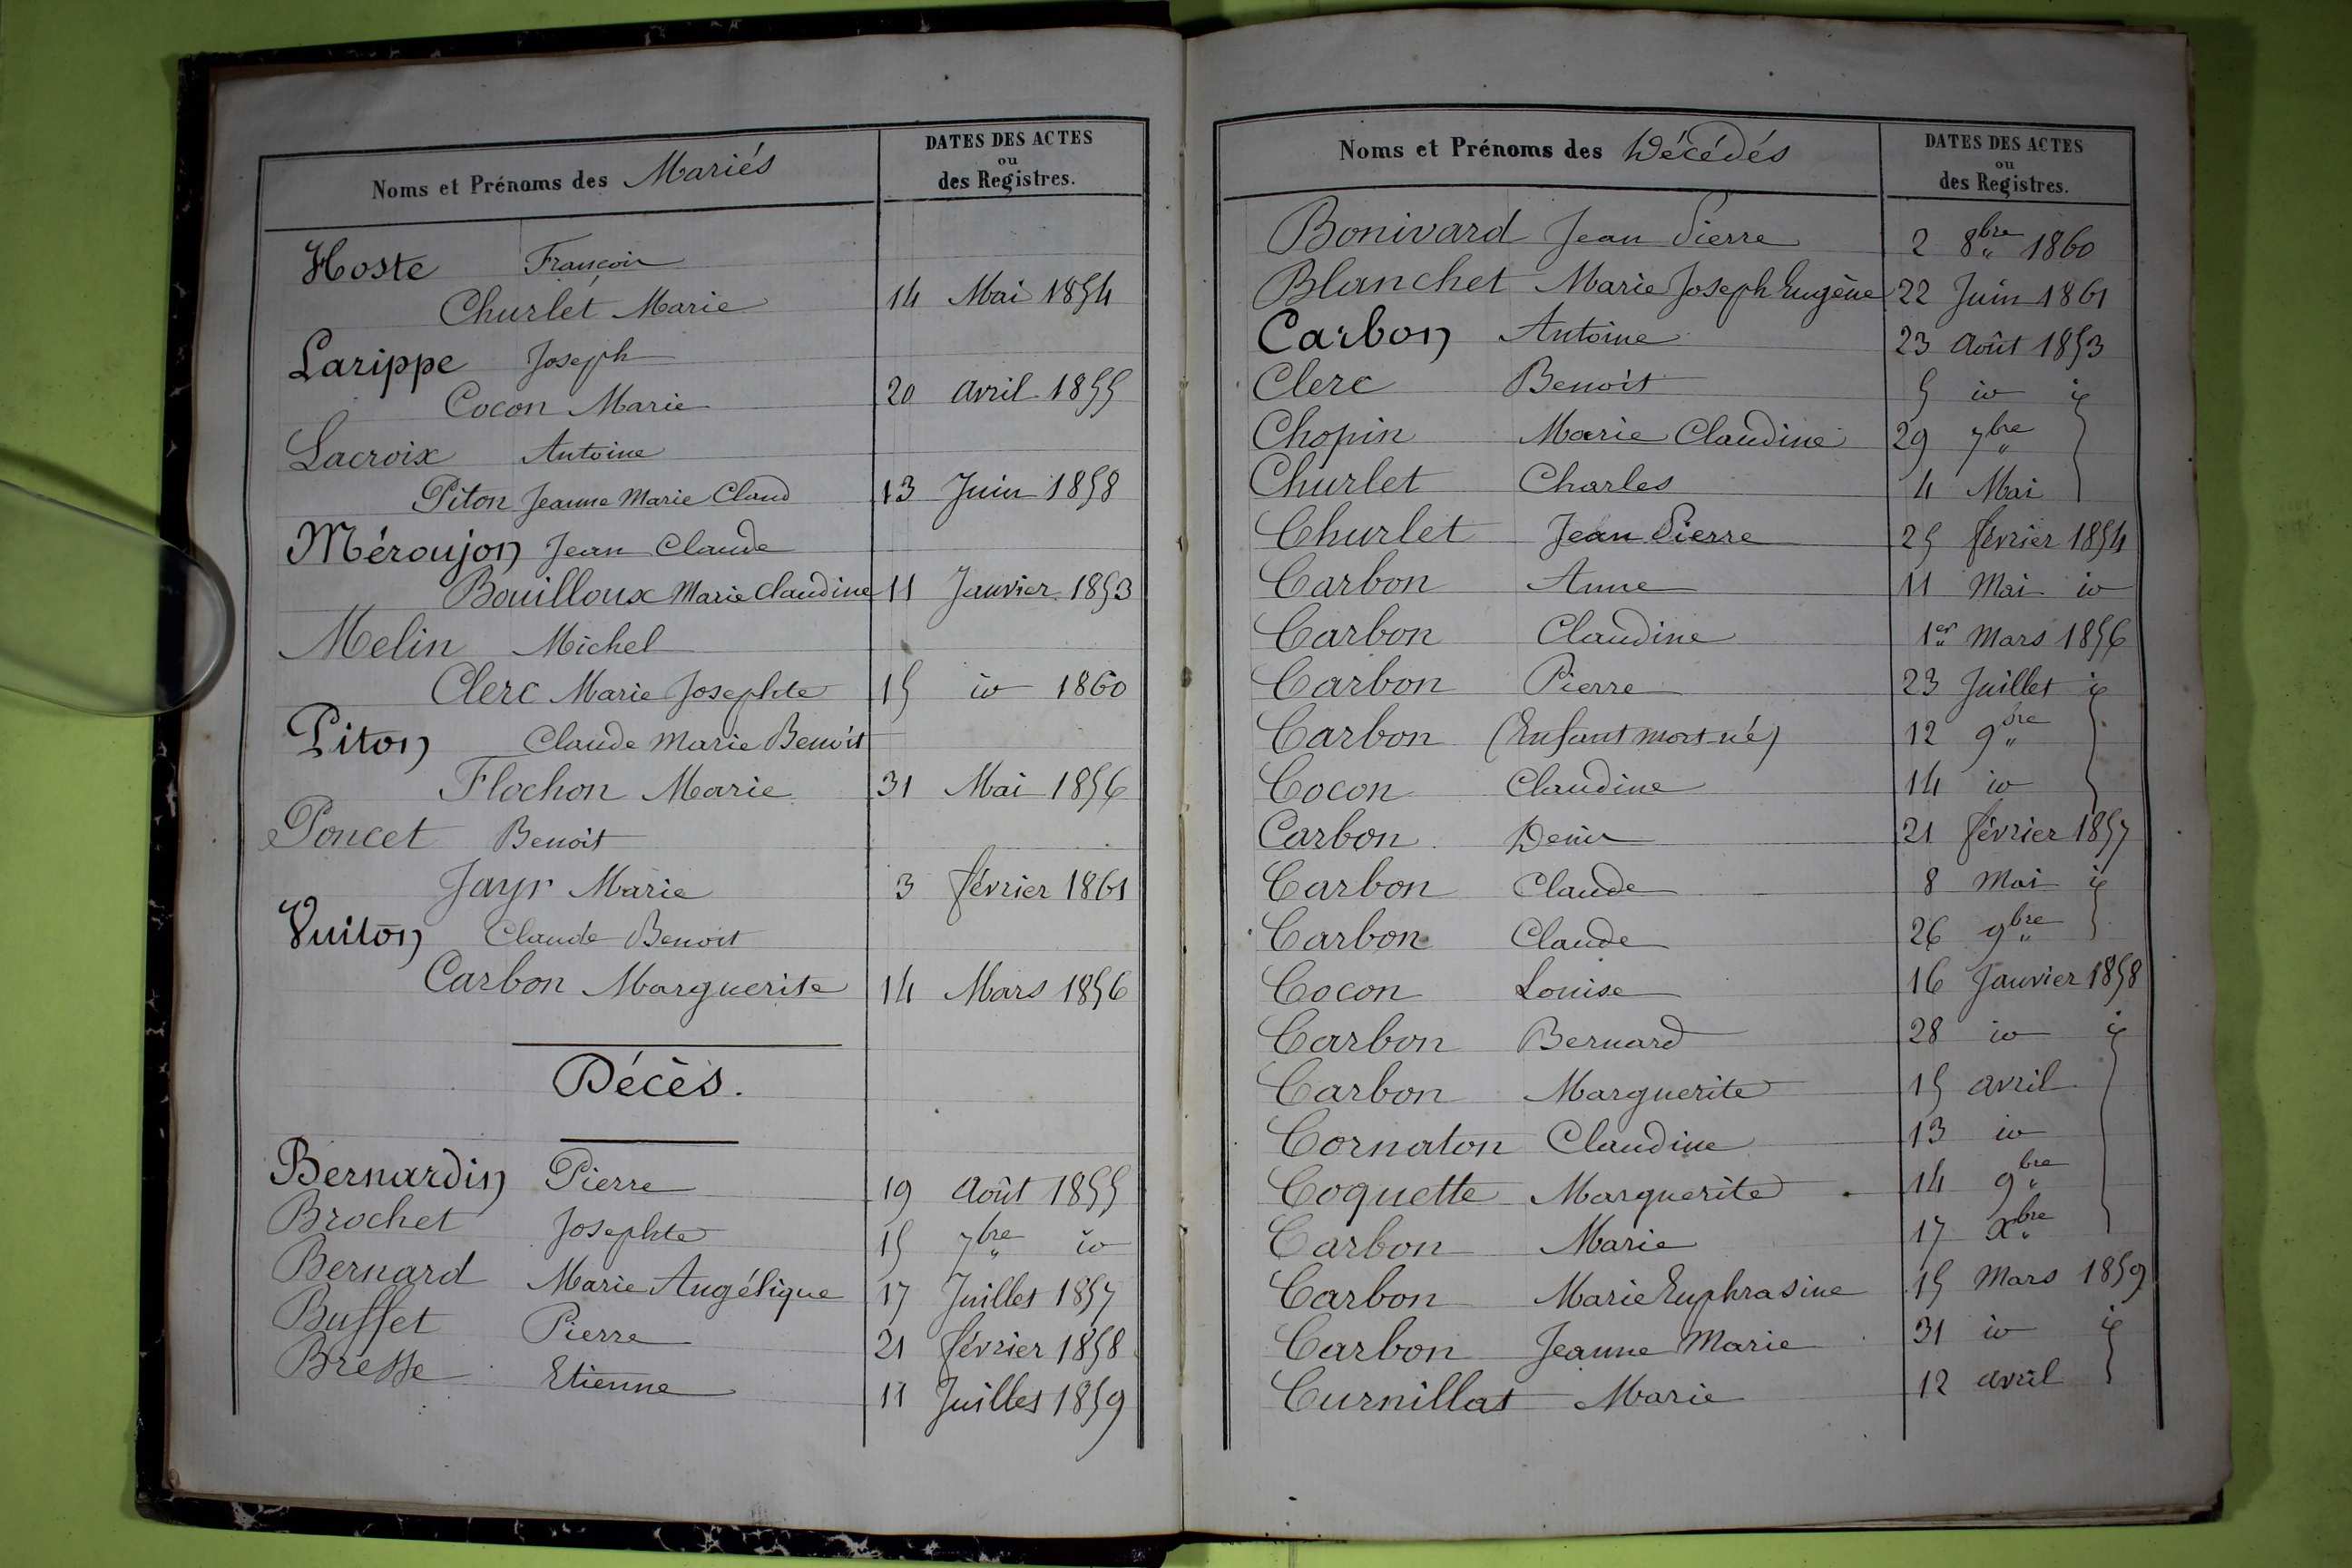 Noms et Prénoms des Mariés
DATES DES ACTES
ou
des Registres.
Hoste François
Churlet Marie 14 Mai 1854
Larippe Joseph
Cocon Marie 20 avril 1855
Lacroix Antoine
Piton Jeanne Marie Claud 13 Juin 1858
Méroujon Jean Claude
Bouilloux Marie Claudine 11 Janvier 1853
Melin Michel
Clerc Marie Josephte 15 id 1860
Piton Claude Marie Benoit
Flochon Marie 31 Mai 1856
Poncet Benoît
Jayr Marie 3 février 1861
Vuiton Claude Benoit
Carbon Marguerite 14 Mars 1856
Décès.
Bernardin Pierre 19 Août 1855
Brochet Josephte 15 7bre id
Bernard Marie Angélique 17 Juillet 1857
Buffet Pierre 21 février 1858
Bresse Etienne 11 Juillet 1859
Noms et Prénoms des Décédés
DATES DES ACTES
ou
des Registres.
Bonivard Jean Pierre 2 8bre 1860
Blanchet Marie Joseph Eugène 22 Juin 1861
Carbon Antoine 23 Août 1853
Clerc Benoit 5 id id
Chopin Marie Claudine 29 7bre
Churlet Charles 4 Mai
Churlet Jean Pierre 25 février 1854
Carbon Anne 11 Mai id
Carbon Claudine 1er Mars 1856
Carbon Pierre 23 Juillet id
Carbon (Enfant mort né) 12 9bre
Cocon Claudine 14 id
Carbon Denis 21 février 1857
Carbon Claude 8 Mai id
Carbon Claude 26 9bre
Cocon Louise 16 Janvier 1858
Carbon Bernard 28 id id
Carbon Marguerite 15 avril
Cornaton Claudine 13 id
Coquette Marguerite 14 9bre
Carbon Marie 17 Xbre
Carbon Marie Euphrasine 15 Mars 1859
Carbon Jeanne Marie 31 id id
Curnillat Marie 12 avril